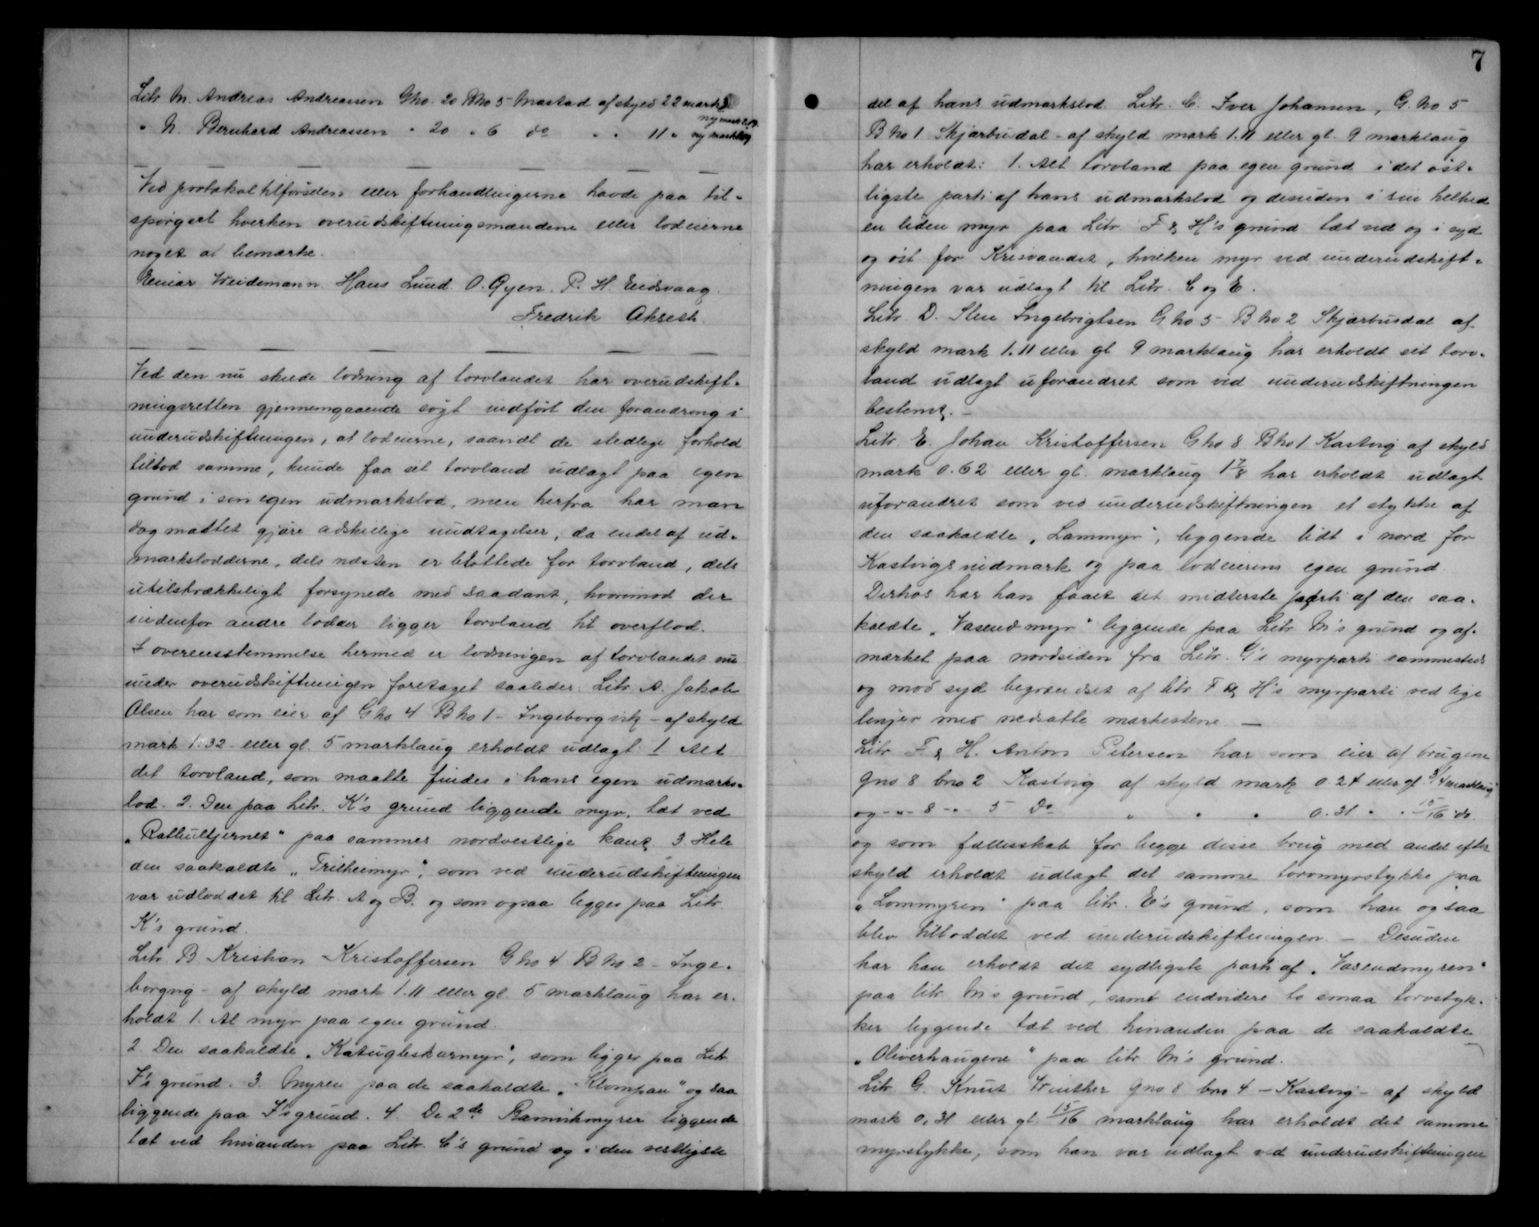 Litr M. Andreas Andreassen Gno. 20 Bno 5 Mastad af skyld 22 mark
ny mark 2.79
" N. Bernhard Andreassen " 20 " 6 do " " 11 "
Ved protokoltilførslen eller forhandlingerne havde paa til-
spørgsel hverken overudskiftningsmændene eller lodeierne
noget at bemærke.
Einar Weidemann Hans Lund O. Gyen. P. H. Eidsvaag.
Fredrik
Ved den nu skede lodning af torvlandet har overudskift-
ningsretten gjennemgaaende søgt indført den forandring i
underudskiftningen, at lodeierne, saavidt de stedlige forhold
tillod samme, kunde faa sit torvland udlagt paa egen
grund i sin egen udmarkslod, men herfra har man
dog maattet gjøre adskillige undtagelser, da endel af ud-
markslodderne, dels næsten er blottede for torvland, dels
utilstrækkeligt forsynede med saadant, hvorimod der
indenfor andre lodder ligger torvland til overflod.
I overensstemmelse hermed er lodningen af torvlandet nu
under overudskiftningen foretaget saaledes: Litr. A. Jakob
Olsen har som eier af Gno 4 Bno 1 - Ingeborgvik - af skyld
mark 1.32 eller gl. 5 marklaug erholdt udlagt 1. Alt
det torvland, som maatte findes i hans egen udmarks-
lod. 2. Den paa Litr. K's grund liggende myr, tæt ved
"Rathultjernet" paa sammes nordvestlige kant, 3. Hele
den saakaldte "Trilheimyr", som ved underudskiftningen
var udloddet til Litr. A og B. og som ogsaa ligger paa Litr.
K's grund.
Litr B Kristian Kristoffersen Gno 4 Bno 2 - Inge-
borgvig - af skyld mark 1.11 eller gl. 5 marklaug har er-
holdt 1. Al myr paa egen grund.
2. Den saakaldte "Katugleskarmyr", som ligger paa Litr
F's grund. 3. Myren paa de saakaldte "Klompan" og saa
liggende paa F's grund. 4. De 2de myrer liggende
tæt ved hinanden paa Litr. C's grund og i den vestligste
7
del af hans udmarkslod Litr. C. Iver Johansen, G. No 5
B No 1 Skjærbusdal - af skyld mark 1.11 eller gl. 9 marklaug
har erholdt: 1. Alt torvland paa egen grund i det øst-
ligste parti af hans udmarkslod og desuden i sin helhed
en liden myr paa Litr F & H's grund tæt ved og i syd
og øst for Krisvandet, hvilken myr ved underudskift-
ningen var udlagt til Litr. C og E.
Litr. D. Sten Ingebrigtsen G No 5 B No 2 Skjærbusdal af
skyld mark 1.11 eller gl 9 marklaug har erholdt sit torv-
land udlagt uforandret som ved underudskiftningen
bestemt. -
Litr. E. Johan Kristoffersen G No 8 B No 1 Kastvig af skyld
mark 0.62 eller gl. marklaug 1 7/8 har erholdt udlagt
uforandret som ved underudskiftningen et stykke af
den saakaldte "Lommyr", liggende lidt i nord for
Kastvigs indmark og paa lodeierens egen grund.
Derhos har han faaet det midterste parti af den saa-
kaldte "Vasendmyr" liggende paa Litr. M's grund og af-
mærket paa nordsiden fra Litr. G's myrparti sammesteds
og mod syd begrændset af litr F & H's myrparti ved lige
linjer med nedsatte markestene. -
Litr F & H. Anton Petersen har som eier af brugene
gno 8 bno 2 Kastvig af skyld mark 0.24 eller gl 3/4 marklaug
og - " - 8 - " - 5 Do " " " 0.31 " " 15/16 do
og som fællesskab for begge disse brug med andel efter
skyld erholdt udlagt det samme torvmyrstykke paa
"Lommyren" paa litr. E's grund, som han ogsaa
blev tilloddet ved underudskiftningen. - Desuden
har han erholdt det sydligste parti af "Vasendmyren"
paa litr M's grund, samt endvidere to smaa torvstyk-
ker liggende tæt ved hinanden paa de saakaldte
"Oliverhaugene" paa litr M's grund.
Litr G. Knut Winther gno 8 bno 4 - Kastvig - af skyld
mark 0,31 eller gl 15/16 marklaug har erholdt det samme
myrstykke, som han var udlagt ved underudskiftningen